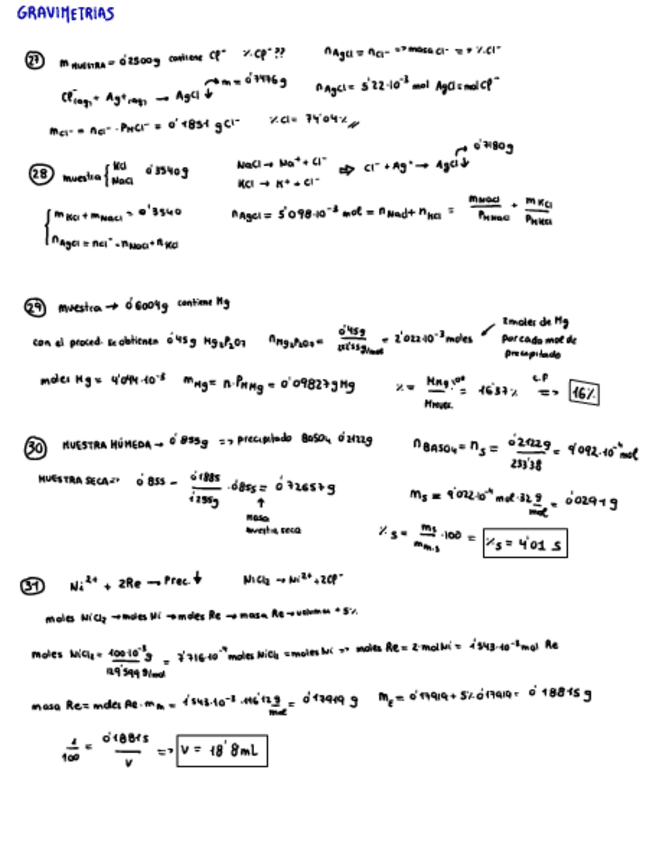 GRAVIMETRIAS
27 m MUESTRA = 0'2500g contiene Cl⁻ % Cl⁻?? nAgCl = nCl⁻ => masa Cl⁻ => %Cl⁻
m = 0'7476g
Cl⁻(aq) + Ag⁺(aq) → AgCl ↓ nAgCl = 5'22·10⁻³ mol AgCl = mol Cl⁻
mCl⁻ = nCl⁻ · PMCl⁻ = 0'1851 gCl⁻ %Cl = 74'04%
0'7180g
28 muestra { KCl NaCl 0'3540g NaCl → Na⁺ + Cl⁻ KCl → K⁺ + Cl⁻ => Cl⁻ + Ag⁺ → AgCl ↓
{ mKCl + mNaCl = 0'3540 nAgCl = 5'098·10⁻³ mol = nNaCl + nKCl = mNaCl/PMNaCl + mKCl/PMKCl
nAgCl = nCl⁻ = nNaCl + nKCl
29 muestra → 0'6004g contiene Mg
con el proced. se obtienen 0'45g Mg₂P₂O₇ nMg₂P₂O₇ = 0'45g / 222'55g/mol = 2'022·10⁻³ moles 2 moles de Mg por cada mol de precipitado
moles Mg = 4'044·10⁻³ mMg = n·PMMg = 0'09827gMg % = mMg·100 / mmues. = 16'37% C.P => 16%
30 MUESTRA HÚMEDA → 0'855g => precipitado BaSO₄ 0'2122g nBaSO₄ = nS = 0'2122g / 233'38 = 9'092·10⁻⁴ mol
MUESTRA SECA => 0'855 - 0'1885 / 1'255g · 0'855 = 0'72657g mS = 9'022·10⁻⁴ mol · 32 g/mol = 0'0291g
masa muestra seca
%S = mS / mm.s · 100 = %S = 4'01 S
31 Ni²⁺ + 2Re → Prec. ↓ NiCl₂ → Ni²⁺ + 2Cl⁻
moles NiCl₂ → moles Ni → moles Re → masa Re → volumen + 5%
moles NiCl₂ = 100·10⁻³g / 129'599 g/mol = 7'716·10⁻⁴ moles NiCl₂ = moles Ni => moles Re = 2·mol Ni = 1'543·10⁻³ mol Re
masa Re = moles Re · mm = 1'543·10⁻³ · 116'12 g/mol = 0'17919 g mT = 0'17919 + 5% 0'17919 = 0'18815 g
1/100 = 0'18815 / V => V = 18'8 mL